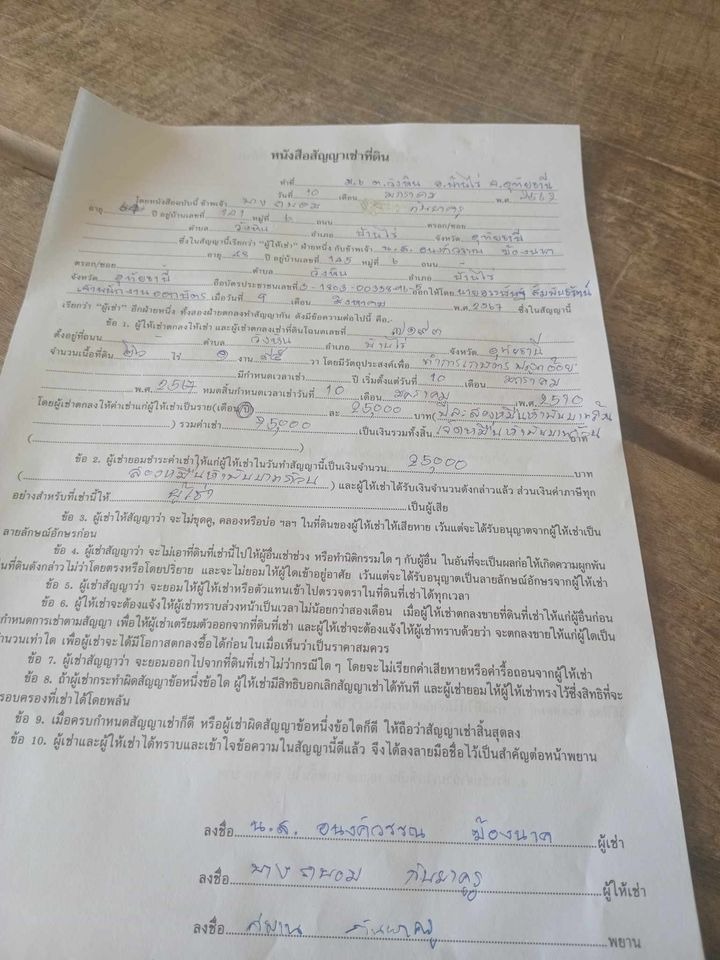 หนังสือสัญญาเช่าที่ดิน
ทำที่ ม.๖ ต.วังหิน อ.บ้านไร่ จ.อุทัยธานี
วันที่ 10 เดือน มกราคม พ.ศ. 2567
โดยหนังสือฉบับนี้ ข้าพเจ้า นาง ถนอม กันยาครู
อายุ ปี อยู่บ้านเลขที่ 121 หมู่ที่ ๖ ถนน ตรอก/ซอย
ตำบล วังหิน อำเภอ บ้านไร่ จังหวัด อุทัยธานี
ซึ่งในสัญญานี้เรียกว่า "ผู้ให้เช่า" ฝ่ายหนึ่ง กับข้าพเจ้า น.ส. อนงค์วรรณ ฆ้องนาค
อายุ ปี อยู่บ้านเลขที่ 125 หมู่ที่ ๖ ถนน
ตรอก/ซอย ตำบล วังหิน อำเภอ บ้านไร่
จังหวัด อุทัยธานี ถือบัตรประชาชนเลขที่ ออกให้โดย
เมื่อวันที่ 9 เดือน สิงหาคม พ.ศ. 2567 ซึ่งในสัญญานี้
เรียกว่า "ผู้เช่า" อีกฝ่ายหนึ่ง ทั้งสองฝ่ายตกลงทำสัญญากัน ดังมีข้อความต่อไปนี้ คือ.-
ข้อ 1. ผู้ให้เช่าตกลงให้เช่า และผู้เช่าตกลงเช่าที่ดินโฉนดเลขที่ ๗๖๙๓
ตั้งอยู่ที่ถนน ตำบล วังหิน อำเภอ บ้านไร่ จังหวัด อุทัยธานี
จำนวนเนื้อที่ดิน ๒๖ ไร่ งาน วา โดยมีวัตถุประสงค์เพื่อ ทำการเกษตร
มีกำหนดเวลาเช่า ปี เริ่มตั้งแต่วันที่ 10 เดือน มกราคม
พ.ศ. 2567 หมดสิ้นกำหนดเวลาเช่าวันที่ 10 เดือน มกราคม พ.ศ. 2570
โดยผู้เช่าตกลงให้ค่าเช่าแก่ผู้ให้เช่าเป็นราย(เดือน/ปี) ละ 25,000 บาท( ปีละสองหมื่นห้าพันบาทถ้วน
) รวมค่าเช่า 75,000 เป็นเงินรวมทั้งสิ้น เจ็ดหมื่นห้าพันบาทถ้วน บาท
( )
ข้อ 2. ผู้เช่ายอมชำระค่าเช่าให้แก่ผู้ให้เช่าในวันทำสัญญานี้เป็นเงินจำนวน 25,000 บาท
( สองหมื่นห้าพันบาทถ้วน ) และผู้ให้เช่าได้รับเงินจำนวนดังกล่าวแล้ว ส่วนเงินค่าภาษีทุก
อย่างสำหรับที่เช่านี้ให้ ผู้เช่า เป็นผู้เสีย
ข้อ 3. ผู้เช่าให้สัญญาว่า จะไม่ขุดคู, คลองหรือบ่อ ฯลฯ ในที่ดินของผู้ให้เช่าให้เสียหาย เว้นแต่จะได้รับอนุญาตจากผู้ให้เช่าเป็น
ลายลักษณ์อักษรก่อน
ข้อ 4. ผู้เช่าสัญญาว่า จะไม่เอาที่ดินที่เช่านี้ไปให้ผู้อื่นเช่าช่วง หรือทำนิติกรรมใด ๆ กับผู้อื่น ในอันที่จะเป็นผลก่อให้เกิดความผูกพัน
ในที่ดินดังกล่าวไม่ว่าโดยตรงหรือโดยปริยาย และจะไม่ยอมให้ผู้ใดเข้าอยู่อาศัย เว้นแต่จะได้รับอนุญาตเป็นลายลักษณ์อักษรจากผู้ให้เช่า
ข้อ 5. ผู้เช่าสัญญาว่า จะยอมให้ผู้ให้เช่าหรือตัวแทนเข้าไปตรวจตราในที่ดินที่เช่าได้ทุกเวลา
ข้อ 6. ผู้ให้เช่าจะต้องแจ้งให้ผู้เช่าทราบล่วงหน้าเป็นเวลาไม่น้อยกว่าสองเดือน เมื่อผู้ให้เช่าตกลงขายที่ดินที่เช่าให้แก่ผู้อื่นก่อน
กำหนดการเช่าตามสัญญา เพื่อให้ผู้เช่าเตรียมตัวออกจากที่ดินที่เช่า และผู้ให้เช่าจะต้องแจ้งให้ผู้เช่าทราบด้วยว่า จะตกลงขายให้แก่ผู้ใดเป็น
จำนวนเท่าใด เพื่อผู้เช่าจะได้มีโอกาสตกลงซื้อได้ก่อนในเมื่อเห็นว่าเป็นราคาสมควร
ข้อ 7. ผู้เช่าสัญญาว่า จะยอมออกไปจากที่ดินที่เช่าไม่ว่ากรณีใด ๆ โดยจะไม่เรียกค่าเสียหายหรือค่ารื้อถอนจากผู้ให้เช่า
ข้อ 8. ถ้าผู้เช่ากระทำผิดสัญญาข้อหนึ่งข้อใด ผู้ให้เช่ามีสิทธิบอกเลิกสัญญาเช่าได้ทันที และผู้เช่ายอมให้ผู้ให้เช่าทรงไว้ซึ่งสิทธิที่จะ
รอบครองที่เช่าได้โดยพลัน
ข้อ 9. เมื่อครบกำหนดสัญญาเช่าก็ดี หรือผู้เช่าผิดสัญญาข้อหนึ่งข้อใดก็ดี ให้ถือว่าสัญญาเช่าสิ้นสุดลง
ข้อ 10. ผู้เช่าและผู้ให้เช่าได้ทราบและเข้าใจข้อความในสัญญานี้ดีแล้ว จึงได้ลงลายมือชื่อไว้เป็นสำคัญต่อหน้าพยาน
ลงชื่อ น.ส. อนงค์วรรณ ฆ้องนาค ผู้เช่า
ลงชื่อ นาง ถนอม กันยาครู ผู้ให้เช่า
ลงชื่อ สมาน กันยาครู พยาน